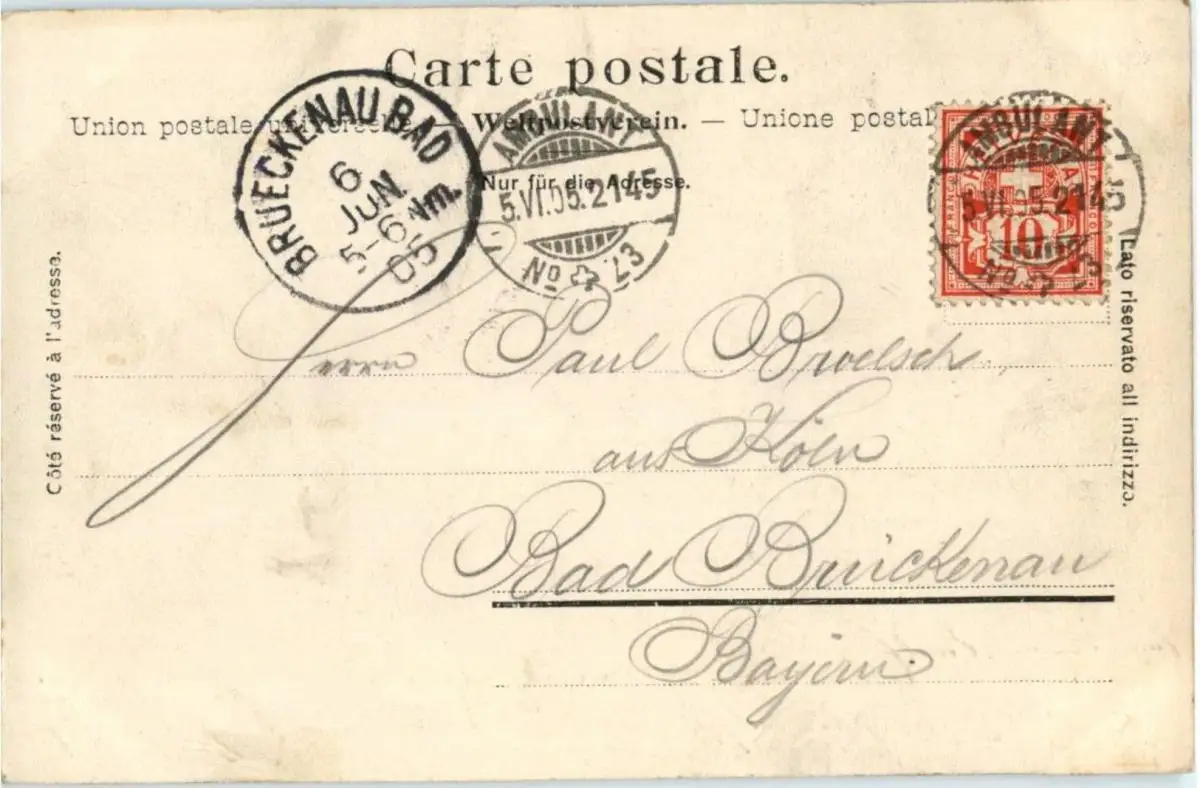 Carte postale.
Union postale universelle — Weltpostverein. — Unione postal
Nur für die Adresse.
BRUECKENAU BAD
6
JUN.
5-6 Nm.
05
AMBULANT
5.VI.05.2145
No 23
AMBULANT
5.VI.05.2145
No 23
FRANCO
HELVETIA
10
Côté réservé à l'adresse.
Lato riservato all indirizzo.
Herrn Paul Broelsch
aus Köln
Bad Brückenau
Bayern.